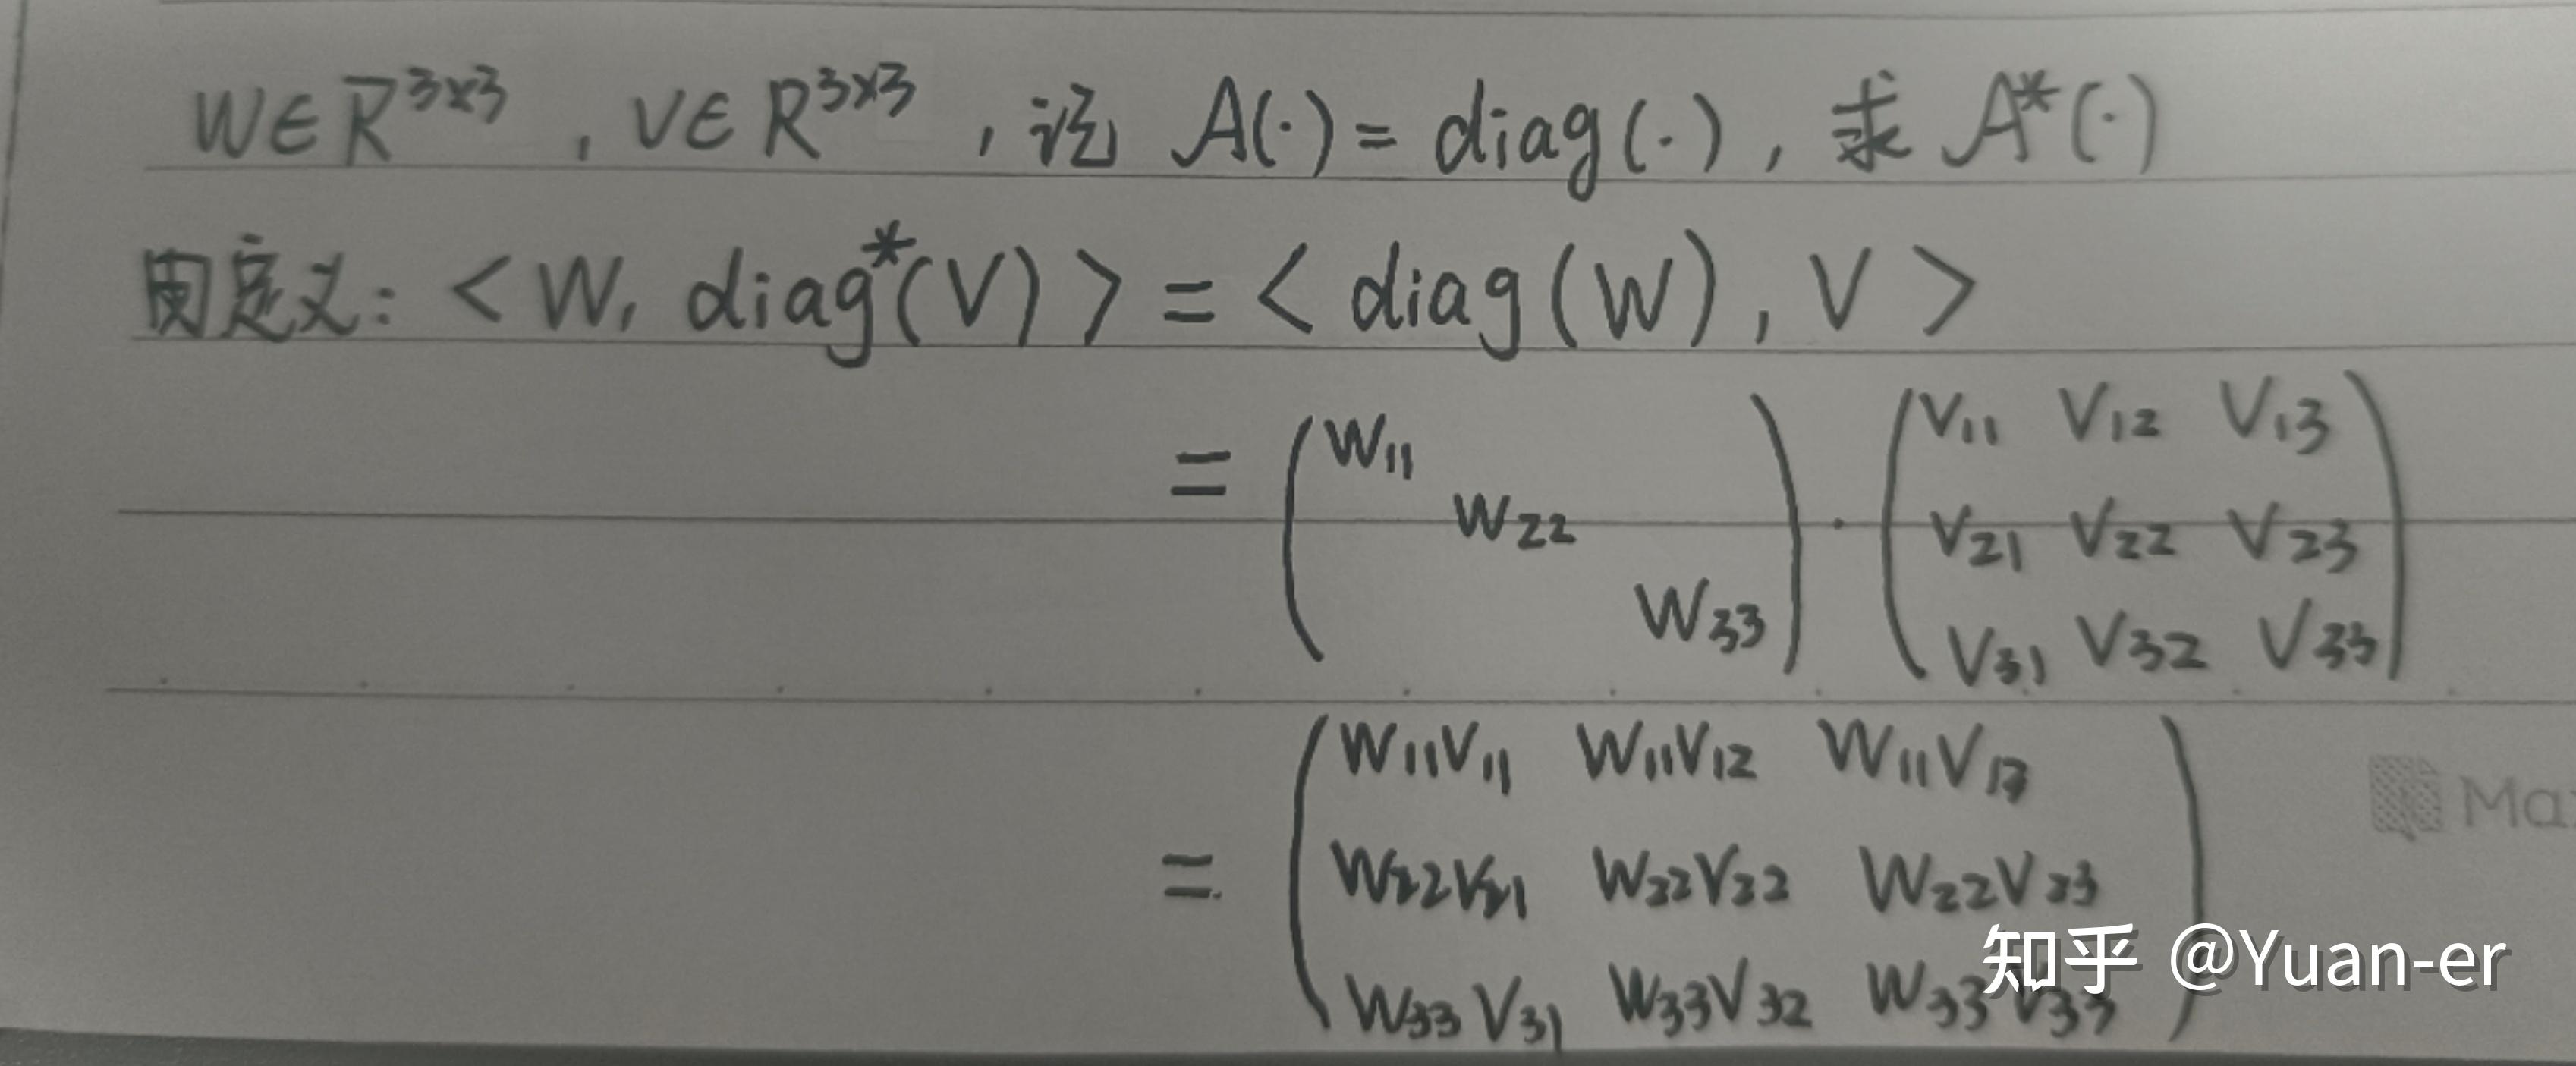 W∈R^{3×3}, V∈R^{3×3}, 记 A(·) = diag(·), 求 A*(·)
由定义: <W, diag*(V)> = <diag(W), V>
= (W11 W22 W33) · (V11 V12 V13
V21 V22 V23
V31 V32 V33)
= (W11V11 W11V12 W11V13
W22V21 W22V22 W22V23
W33V31 W33V32 W33V33)
Ma
知乎 @Yuan-er